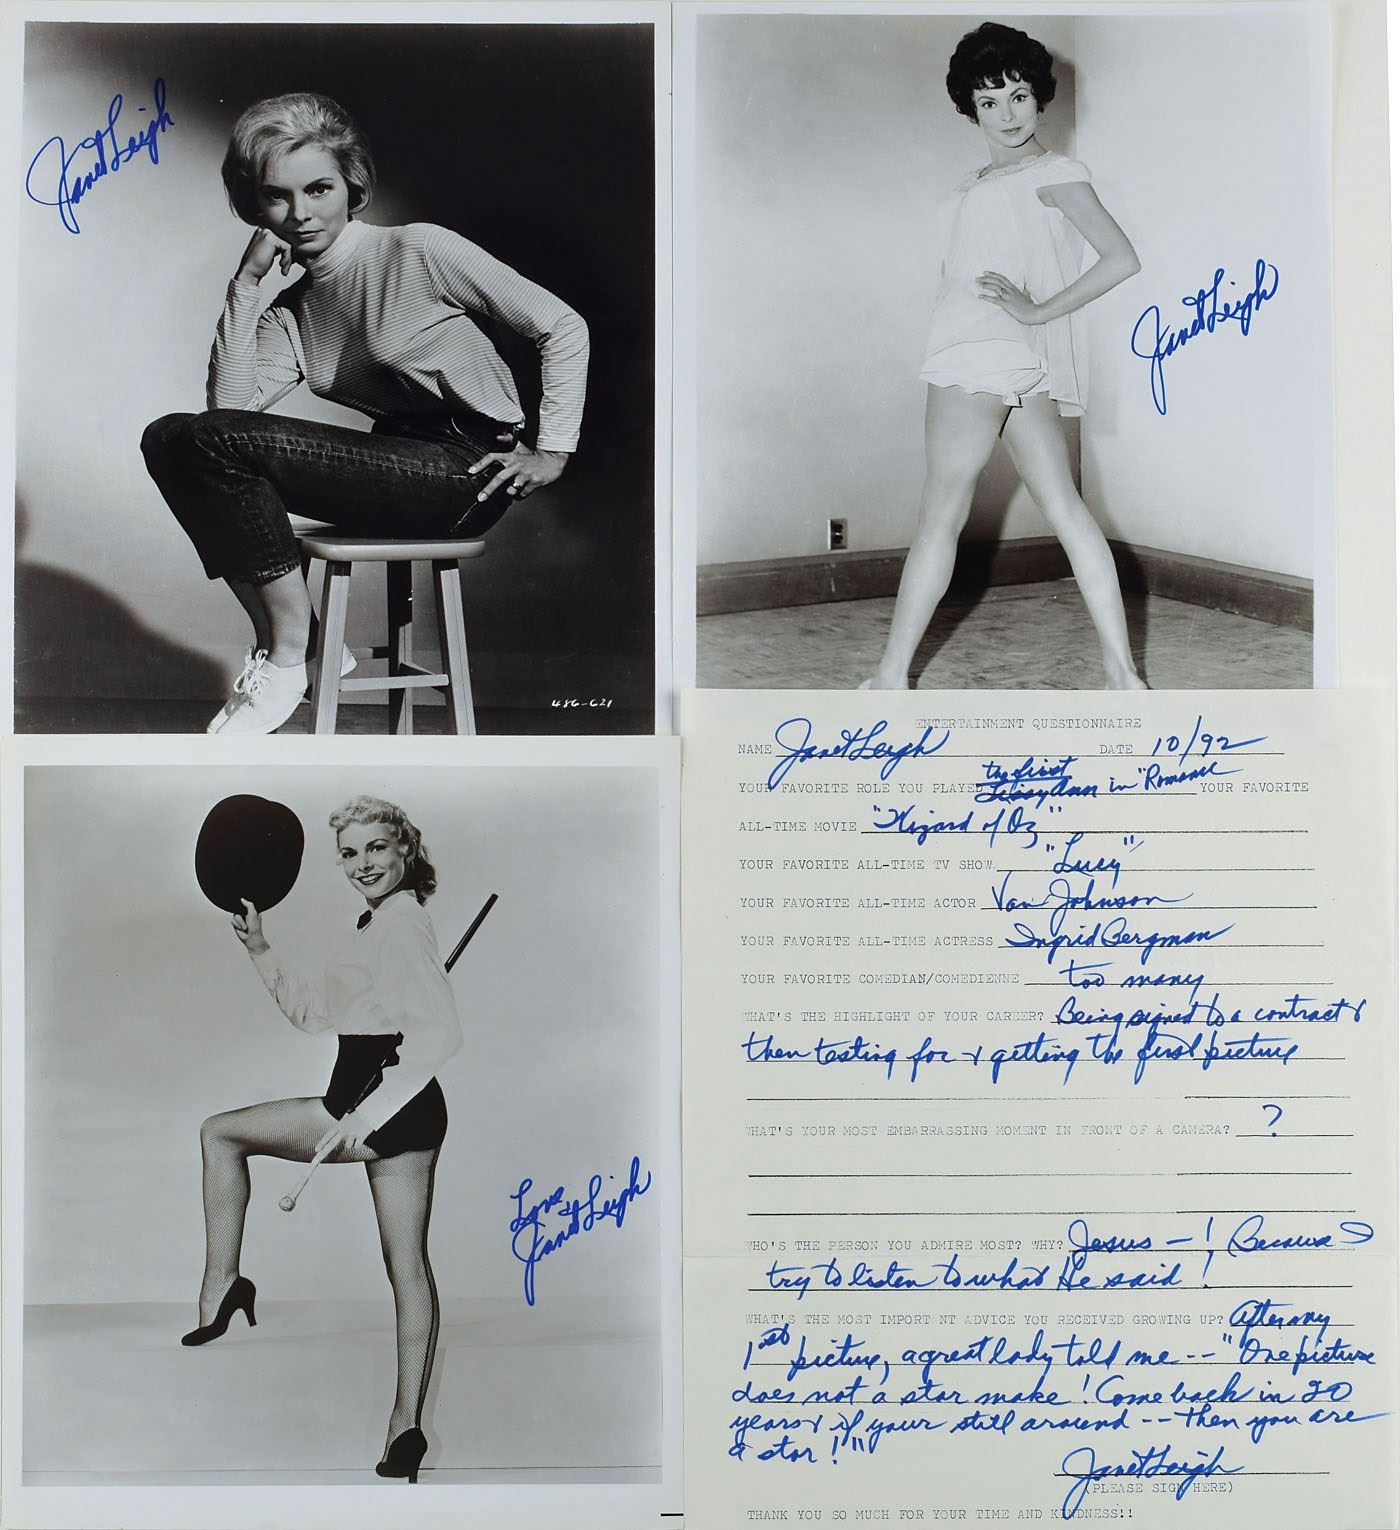 Janet Leigh
Janet Leigh
486-621
Love
Janet Leigh
ENTERTAINMENT QUESTIONNAIRE
NAME Janet Leigh DATE 10/92
the first
YOUR FAVORITE ROLE YOU PLAYED Lissy Ann in "Romance YOUR FAVORITE
ALL-TIME MOVIE "Wizard of Oz"
YOUR FAVORITE ALL-TIME TV SHOW "Lucy"
YOUR FAVORITE ALL-TIME ACTOR Van Johnson
YOUR FAVORITE ALL-TIME ACTRESS Ingrid Bergman
YOUR FAVORITE COMEDIAN/COMEDIENNE too many
WHAT'S THE HIGHLIGHT OF YOUR CAREER? Being signed to a contract &
then testing for & getting the first picture
WHAT'S YOUR MOST EMBARRASSING MOMENT IN FRONT OF A CAMERA? ?
WHO'S THE PERSON YOU ADMIRE MOST? WHY? Jesus -! Because I
try to listen to what He said!
WHAT'S THE MOST IMPORT NT ADVICE YOU RECEIVED GROWING UP? After my
1st picture, a great lady told me -- "One picture
does not a star make! Come back in 20
years & if your still around -- then you are
a star!"
Janet Leigh
(PLEASE SIGN HERE)
THANK YOU SO MUCH FOR YOUR TIME AND KINDNESS!!